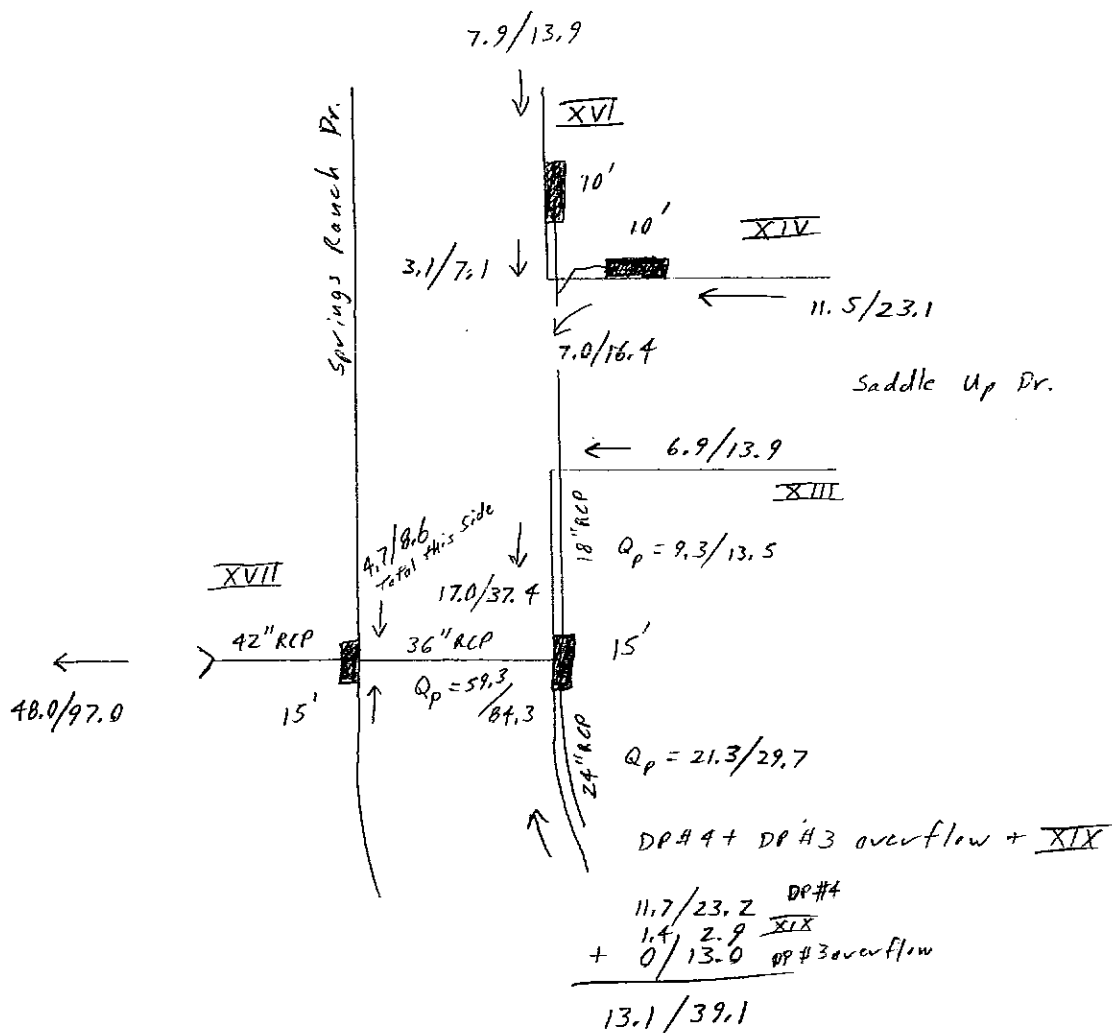 7.9/13.9
XVI
Springs Ranch Dr.
10'
10'
XIV
3.1/7.1
11.5/23.1
7.0/16.4
Saddle Up Dr.
6.9/13.9
XIII
18" RCP
Qp = 9.3/13.5
4.7/8.6
Total this side
17.0/37.4
XVII
42" RCP
36" RCP
15'
48.0/97.0
15'
Qp = 59.3
/84.3
24" RCP
Qp = 21.3/29.7
DP#4 + DP#3 overflow + XIX
11.7/23.2 DP#4
1.4/2.9 XIX
+ 0/13.0 DP#3 overflow
13.1/39.1